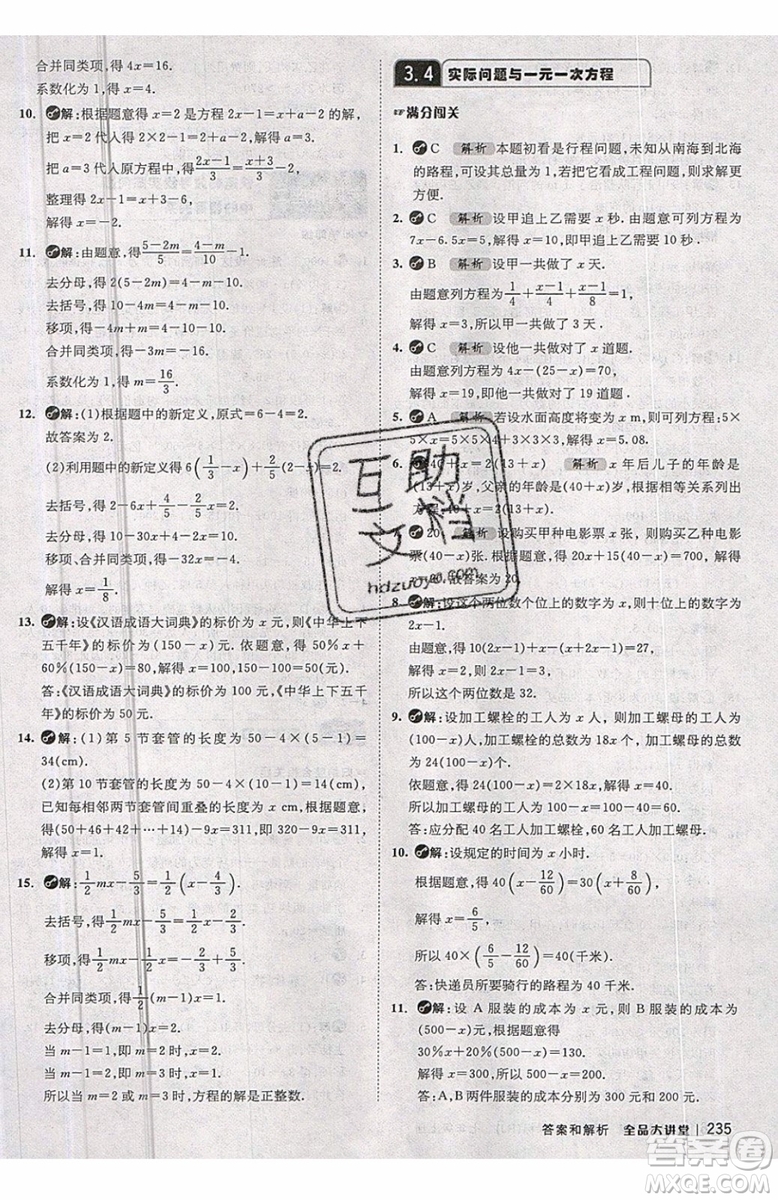 合并同类项，得 4x=16.
系数化为 1，得 x=4.
10. 解：根据题意得 x=2 是方程 2x-1=x+a-2 的解，
把 x=2 代入得 2×2-1=2+a-2，解得 a=3.
把 a=3 代入原方程得 (2x-1)/3=(x+3)/3-2，
整理得 2x-1=x+3-6，
解得 x=-2.
11. 解：由题意，得 (5-2m)/5+(4-10)/10=0.
去分母，得 2(5-2m)=4-10.
去括号，得 10-4m=4-10.
移项，得 -4m+m=4-10.
合并同类项，得 -3m=-16.
系数化为 1，得 m=16/3.
12. 解：(1)根据题中的新定义，原式=6-4=2.
故答案为 2.
(2)利用题中的新定义得 6(1/3-x)+2/5=
去括号，得 2-6x+4/5-
去分母，得
移项，得
合并同类项，得 -32x=-4.
解得 x=1/8.
13. 解：设《汉语成语大词典》的标价为 x 元，则《中华上下
五千年》的标价为(150-x)元. 依题意，得 50%x+
60%(150-x)=80，解得 x=100，150-100=50(元).
答：《汉语成语大词典》的标价为 100 元，《中华上下五千
年》的标价为 50 元.
14. 解：(1)第 5 节套管的长度为 50-4×(5-1)=
34(cm).
(2)第 10 节套管的长度为 50-4×(10-1)=14(cm)，
已知每相邻两节套管间重叠的长度为 x cm，根据题意，
得(50+46+42+…+14)-9x=311，即 320-9x=311，
解得 x=1.
15. 解：1/2mx-2/3=1/2(x-4/3)，
去括号，得 1/2mx-2/3=1/2x-2/3，
移项，得 1/2mx-1/2x=2/3-2/3，
合并同类项，得
去分母，得
当 m-1=1，即 m=2 时，
当 m-1=2，即 m=3 时，
所以当 m=2 或 m=3 时，方程的解是正整数.
3.4 实际问题与一元一次方程
☞满分闯关
1. C 解析 本题初看是行程问题，未知从南海到北海
的路程，可设其总量为 1，若把它看成工程问题，则求解
更快速.
2. C 解析 设甲追上乙需要 x 秒. 由题意可列方程为
7x-6.5x=5，解得 x=10.
3. B 解析 设甲一共做了 x 天.
由题意列方程为 1/4+x/4+(x-1)/8=1，
解得 x=3，所以甲一共做了 3 天.
4. C 解析 设他一共做对了 x 道题.
由题意，得 4x-(25-x)=70，
解得 x=19，所以他一共做对了 19 道题.
5. A 解析 若设水面高度将变为 x m，则可列方程：5×
5×x=5×5×4+3×3×3，解得 x=5.08.
6. 40+x=2(13+x) 解析 x 年后儿子的年龄是
(13+x)岁，父亲的年龄为(40+x)岁，根据相等关系列出
方程 40+x=2(13+x).
7. 20 解析 设购买甲种电影票 x 张，则购买乙种电影
票(40-x)张. 根据题意，
故答案为 20.
8. 解：设这个两位数个位上的数字为 x，则十位上的数
字为(x+1).
由题意，得
解得 x=2.
所以这个两位数为 32.
9. 解：设加工螺栓的工人为 x 人，则加工螺母的工人为
(100-x)人，所以加工螺栓的总数为 18x 个，加工螺母
的总数为 24(100-x)个.
依题意，得 24(100-x)=2×18x，解得 x=40.
所以加工螺母的工人为 100-40=60(人).
答：应分配 40 名工人加工螺栓，60 名工人加工螺母.
10. 解：设规定的时间为 x 小时.
根据题意，得 40(x-12/60)=30(x+8/60)，
解得 x=6/5，
所以 40×(6/5-12/60)=40(千米).
答：快递员所要骑行的路程为 40 千米.
11. 解：设 A 服装的成本为 x 元，则 B 服装的成本为
(500-x)元，根据题意得
30%x+20%(500-x)=130.
解得 x=300，500-x=200.
答：A、B 两件服装的成本分别为 300 元和 200 元.
互助
文档
hdzuoye.com
答案和解析 全品大讲堂 235
作业精灵